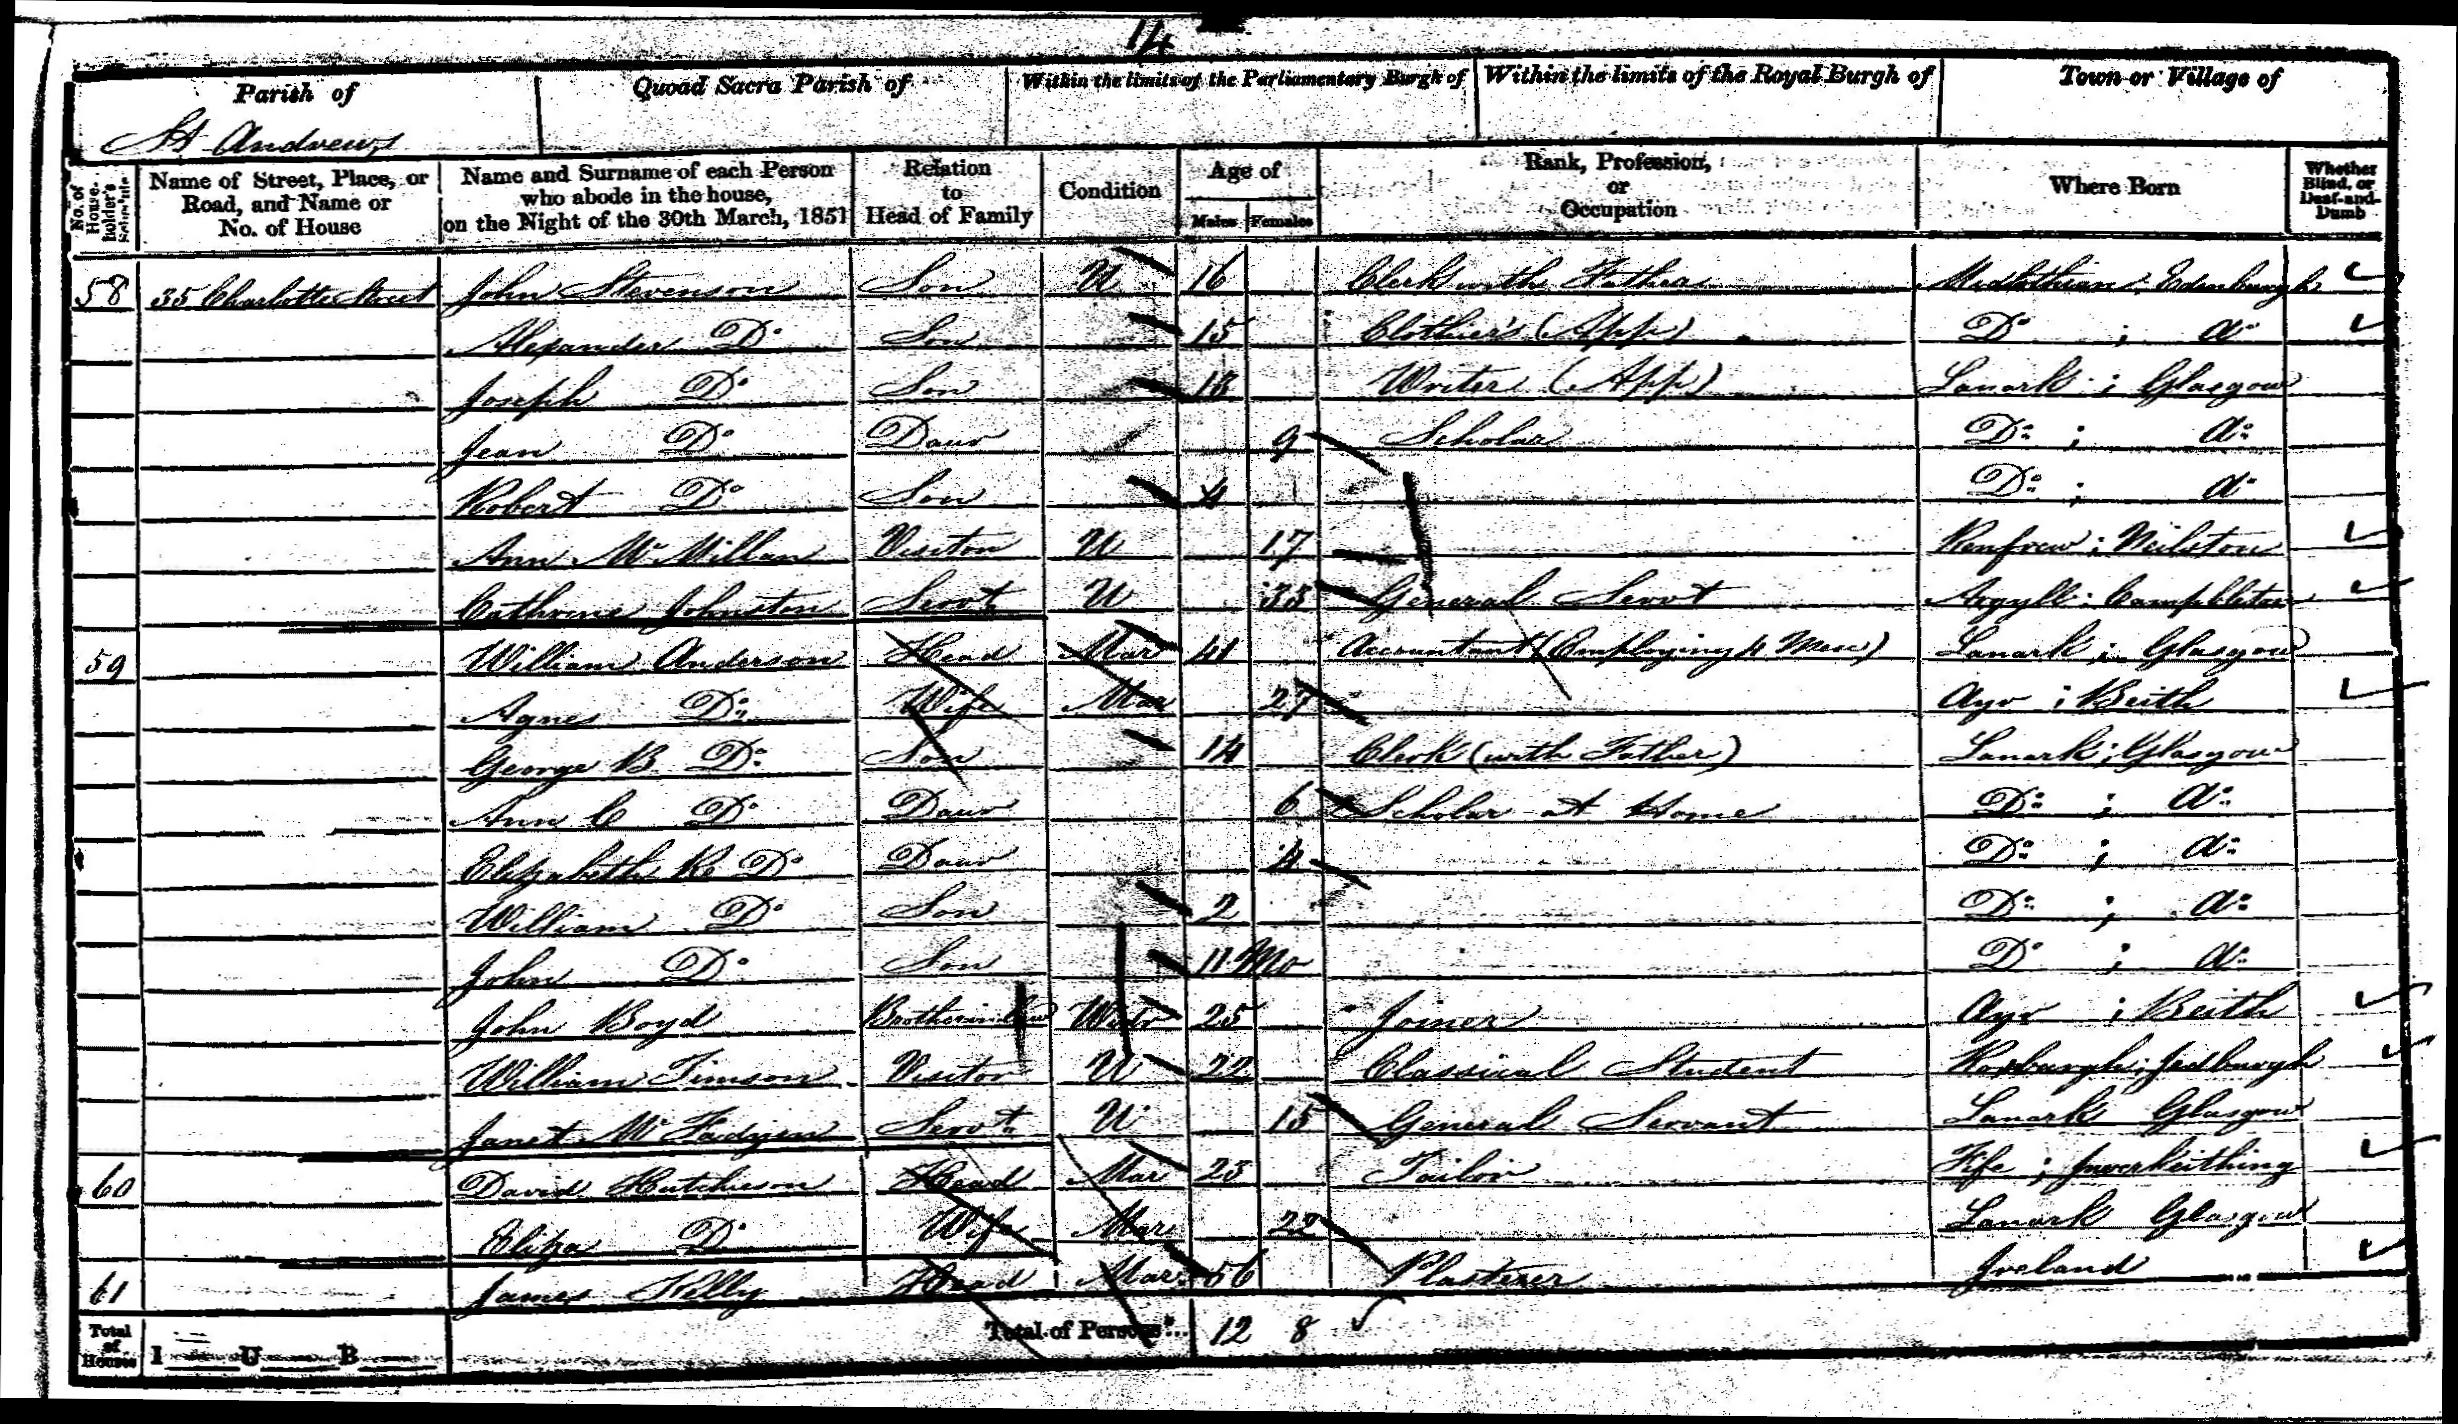 14
Parish of Quoad Sacra Parish of Within the limits of the Parliamentary Burgh of Within the limits of the Royal Burgh of Town or Village of
St Andrews
No. of House-holder's Schedule Name of Street, Place, or Road, and Name or No. of House Name and Surname of each Person who abode in the house, on the Night of the 30th March, 1851 Relation to Head of Family Condition Age of Males Females Rank, Profession, or Occupation Where Born Whether Blind, or Deaf-and-Dumb
58 35 Charlotte Street John Stevenson Son U 16 Clerk with Father Midlothian Edenburgh
Alexander Do Son 15 Clothier's (App) Do ; do
Joseph Do Son 13 Writer (App) Lanark ; Glasgow
Jean Do Daur 9 Scholar Do ; do
Robert Do Son 4 Do ; do
Ann Mc Millan Visitor U 17 Renfrew ; Neilston
Cathrine Johnston Servt U 33 General Servt Argyll : Campbleton
59 William Anderson Head Mar 41 Accountant (Employing 4 Men) Lanark ; Glasgow
Agnes Do Wife Mar 27 Ayr ; Beith
George B Do Son 14 Clerk (with Father) Lanark ; Glasgow
Ann C Do Daur 6 Scholar at Home Do ; do
Elizabeth R Do Daur 4 Do ; do
William Do Son 2 Do ; do
John Do Son 11 Mo Do ; do
John Boyd Brotherinlaw Widr 25 Joiner Ayr ; Beith
William Timson Visitor U 22 Classical Student Roxburgh ; Jedburgh
Janet Mc Fadyen Servt U 15 General Servant Lanark Glasgow
60 David Hutcheson Head Mar 23 Tailor Fife ; Inverkeithing
Eliza Do Wife Mar 22 Lanark Glasgow
61 James Kelly Head Mar 56 Plasterer Ireland
Total of Houses I U B Total of Persons... 12 8